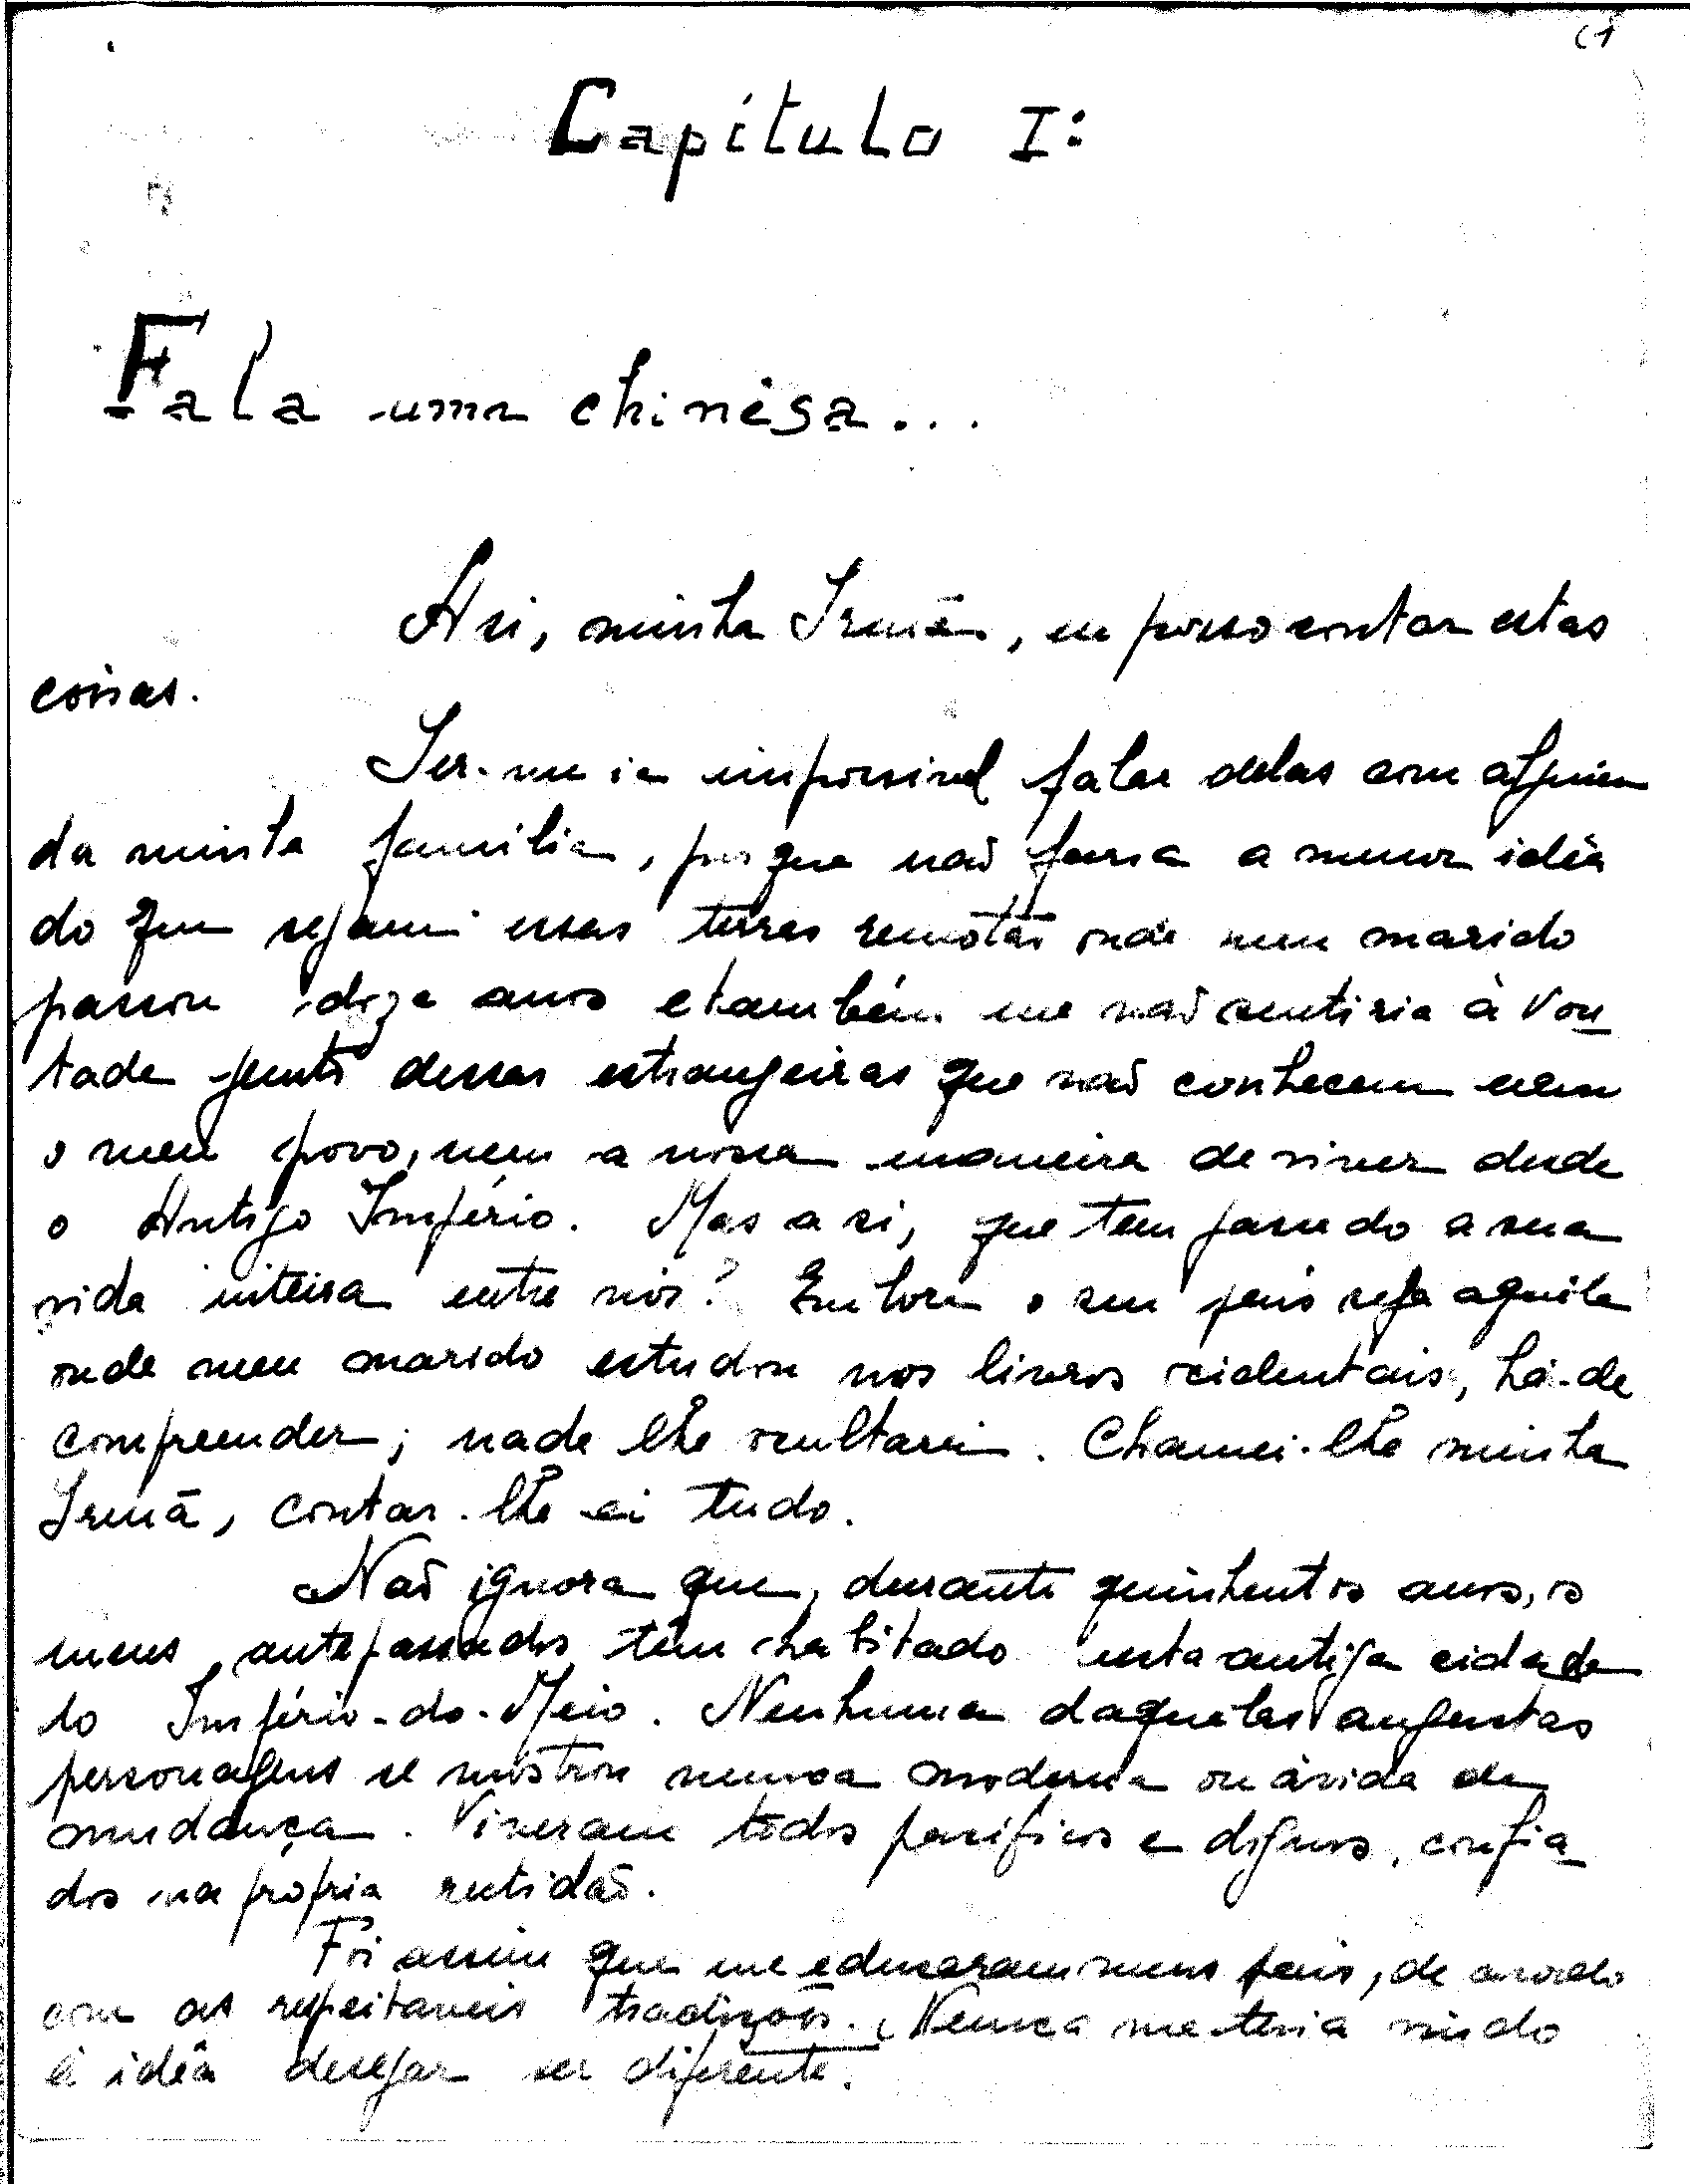 61
Capítulo I:
Fala uma chinêsa...
A si, minha Irmã, eu posso contar estas
coisas.
Ser-me-ia impossível falar delas com alguém
da minha família, porque não fazia a menor idéa
do que sejam essas terras remotas onde meu marido
passou doze anos e também me não sentiria à von
tade junto dessas estrangeiras que não conhecem nem
o meu povo, nem a nossa maneira de viver desde
o Antigo Império. Mas a si, que tem passado a sua
vida inteira entre nós? Embora o seu país seja aquele
onde meu marido estudou nos livros ocidentais, há-de
compreender; nada lhe ocultarei. Chamei-lhe minha
Irmã, contar-lhe ei tudo.
Não ignora que, durante quinhentos anos, os
meus antepassados têm habitado esta antiga cidade
do Império-do-Meio. Nenhuma daquelas augustas
personagens se mostrou nunca moderna ou ávida de
mudança. Viveram todos pacíficos e dignos, confia
dos na própria rectidão.
Foi assim que me educaram meus pais, de acordo
com as respeitaveis tradições. Nunca me teria vindo
à idéa desejar ser diferente.